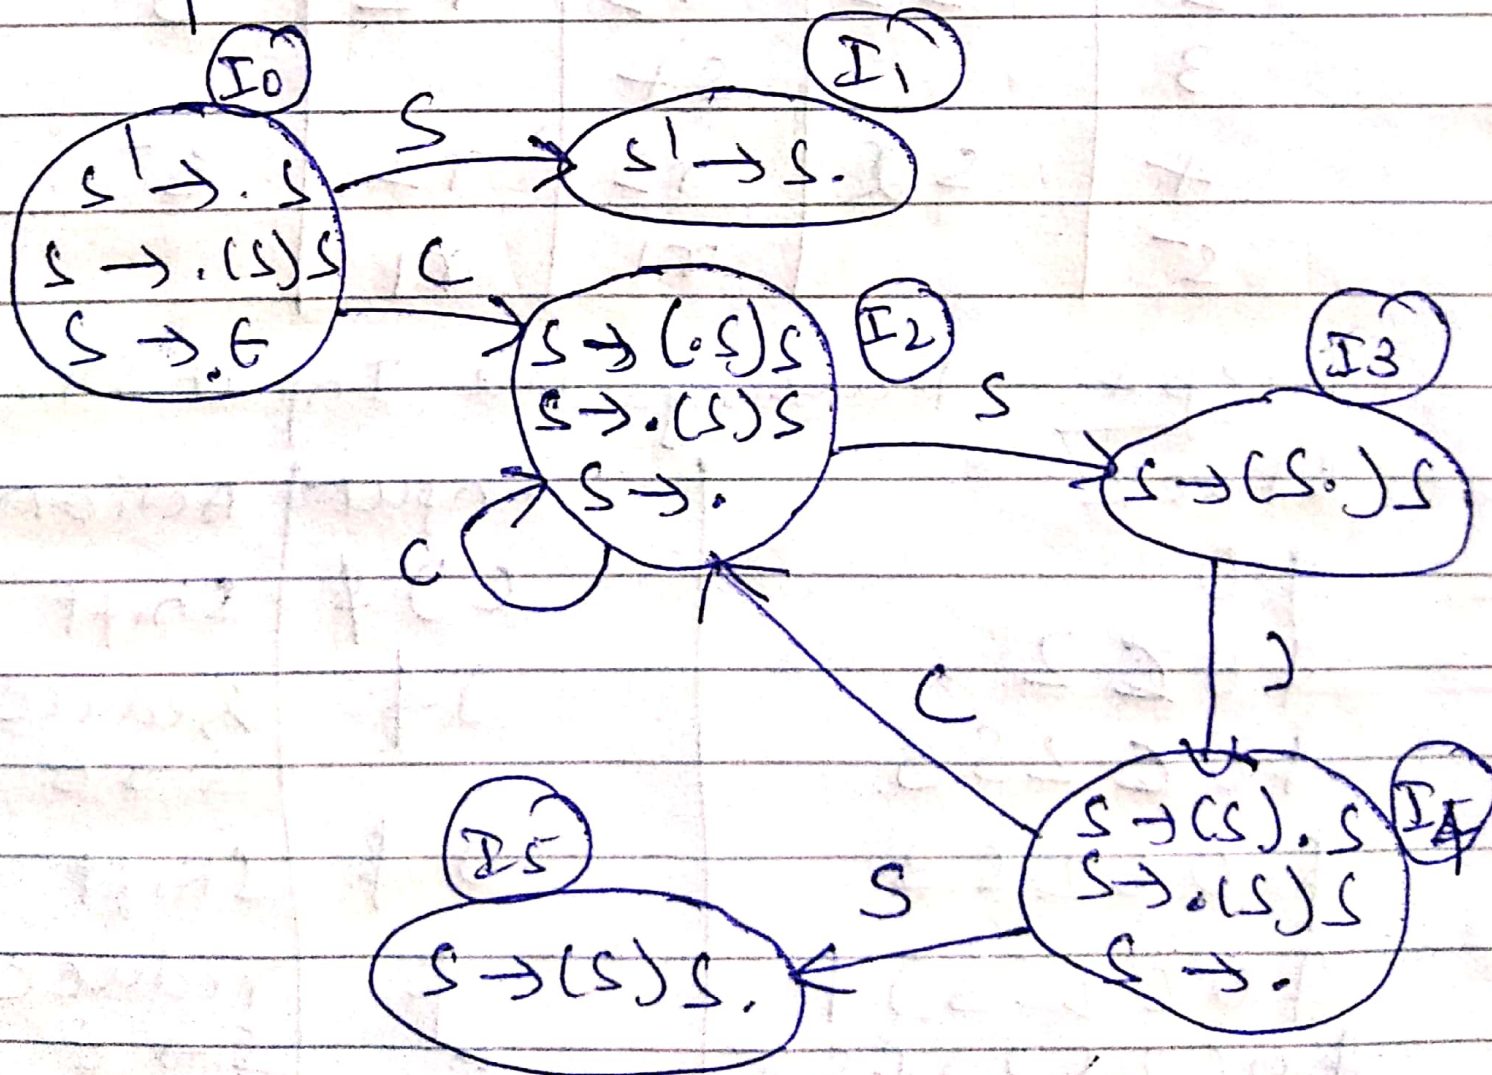 I0
S' → . S
S → . (S)S
S → . ϵ
S
I1
S' → S.
(
I2
S → (.S)S
S → . (S)S
S → .
(
S
I3
S → (S.)S
)
I4
S → (S).S
S → . (S)S
S → .
(
S
I5
S → (S)S.